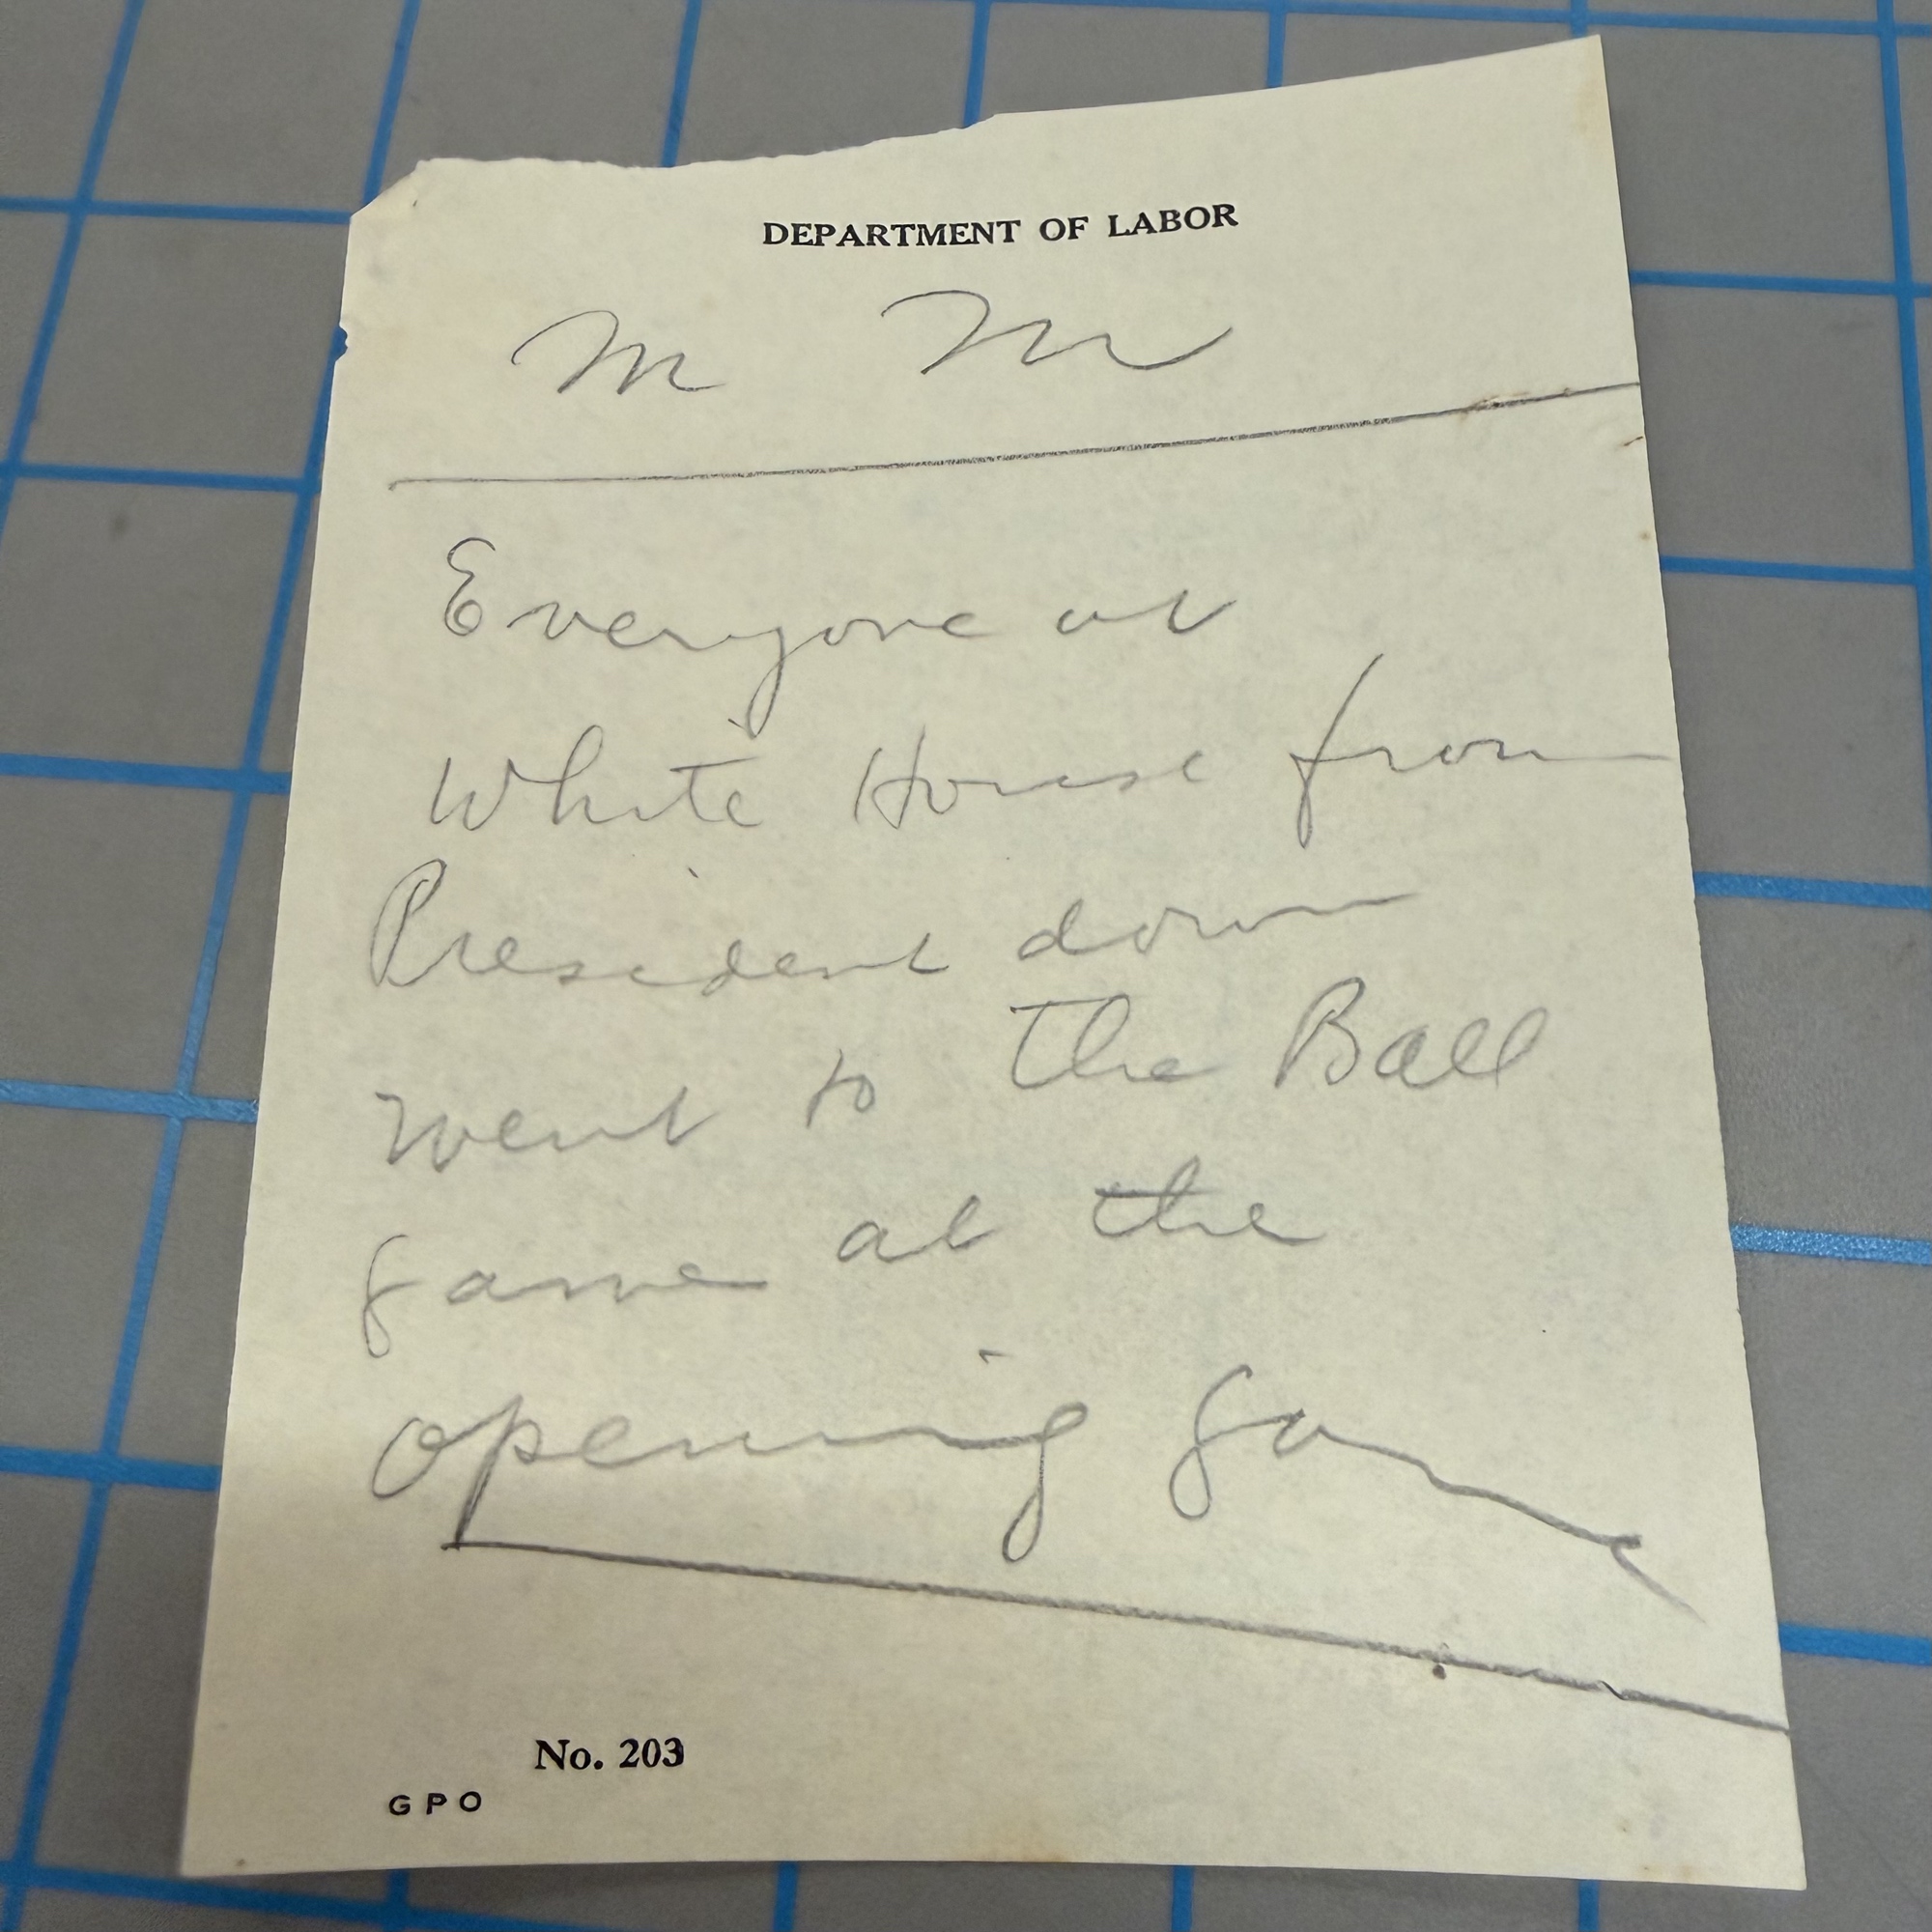 DEPARTMENT OF LABOR
M M
Everyone at
White House from
President down
went to the Ball
game at the
opening game
No. 203
GPO